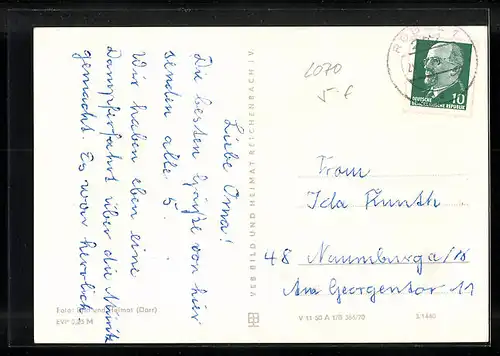 Liebe Oma!
Die besten Grüße von hier
senden alle 5.
Wir haben eben eine
Dampferfahrt über die Müritz
gemacht. Es war herrlich!
Foto: Bild und Heimat (Darr)
EVP 0,25 M
VEB BILD UND HEIMAT REICHENBACH I. V.
2070
5.-€
RÖBEL
DEUTSCHE
DEMOKRATISCHE REPUBLIK
10
Frau
Ida Kunth
48 Naumburg a/S
Am Georgentor 11
V 11 50 A 1/B 366/70